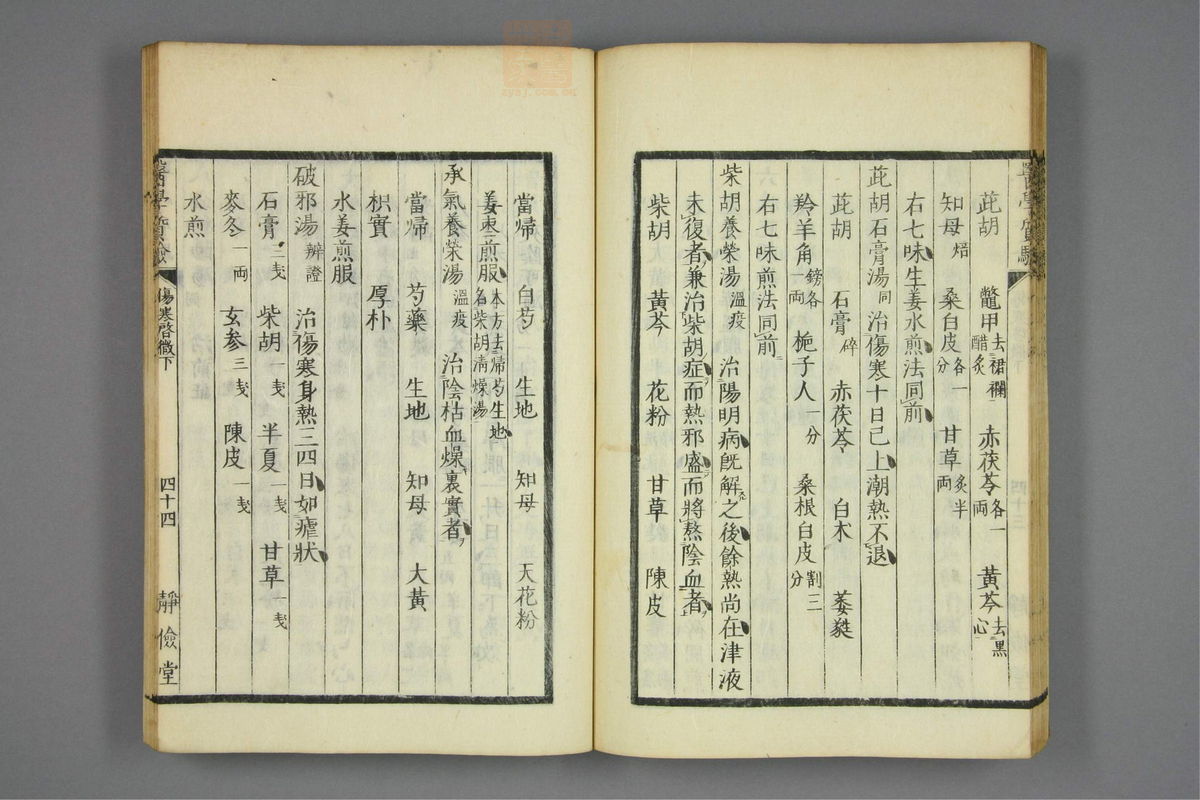 茈胡 鱉甲去裙襴醋炙 赤茯苓各一両 黃芩去黒心
知母焙 桑白皮各一分 甘草炙半両
右七味生姜水煎法同前
茈胡石膏湯同 治傷寒十日已上潮熱不退
茈胡 石膏碎 赤茯苓 白朮 萎蕤
羚羊角鎊各一両 梔子人一分 桑根白皮割三分
右七味煎法同前
柴胡養榮湯溫疫 治陽明病既解之後餘熱尚在津液
未復者兼治柴胡症而熱邪盛而將熬陰血者
柴胡 黃芩 花粉 甘草 陳皮
當帰 白芍 生地 知母 天花粉
姜枣煎服本方去帰芍生地名柴胡淸燥湯
承氣養榮湯溫疫 治陰枯血燥裏實者
當帰 芍藥 生地 知母 大黃
枳實 厚朴
水姜煎服
破邪湯辨證 治傷寒身熱三四日如瘧狀
石膏三戔 柴胡一戔 半夏一戔 甘草一戔
麥冬一両 玄参三戔 陳皮一戔
水煎
醫學質驗 傷寒啓微下 四十四 靜儉堂